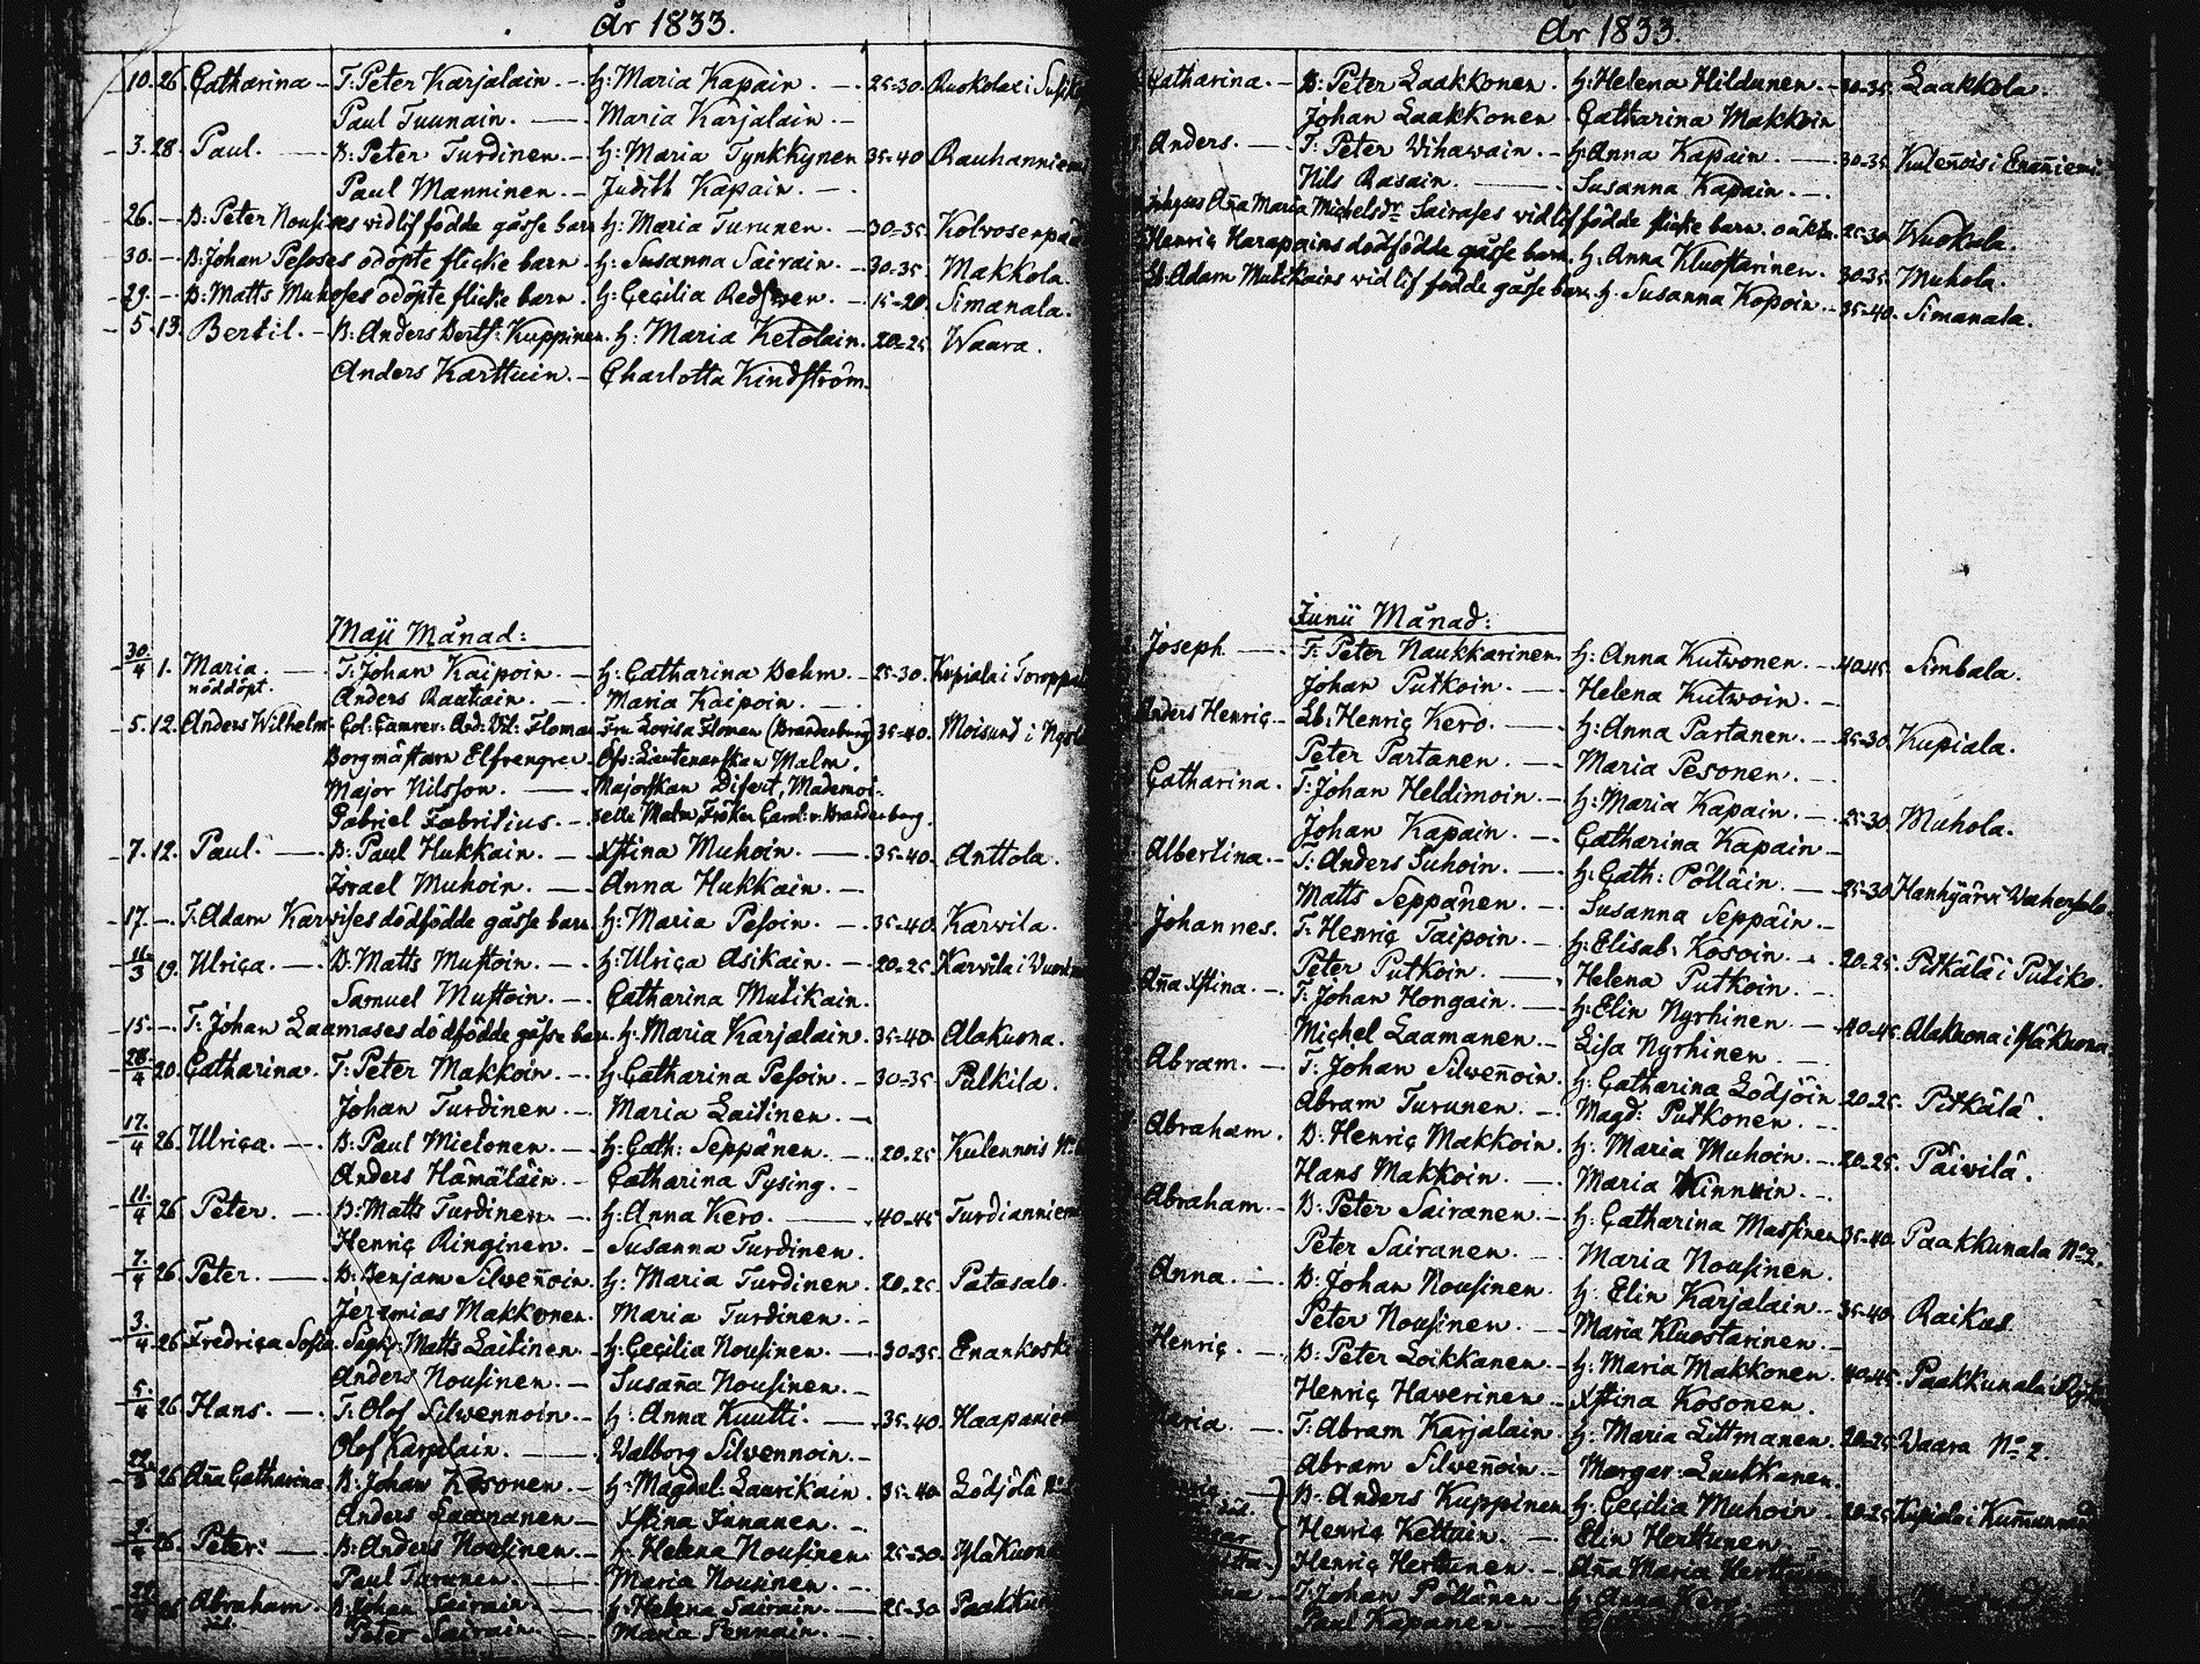 År 1833.
10. 26. Catharina — T: Peter Karjalain. — H: Maria Kapain. — 25-30. Ruokolax i
Paul Tuunain. — Maria Karjalain —
3. 28. Paul. — B: Peter Turdinen. — H: Maria Tynkkynen 35-40 Rauhanniemi
Paul Manninen. — Judith Kapain. —
26. — B: Peter Nousises vid lif födde gåsse barn H: Maria Turunen. — 30-35. Kolvosenpää
30. — B: Johan Pesoses odöpte flicke barn. H: Susanna Sairain. — 30-35. Makkola.
29. — B: Matts Muhoses odöpte flicke barn. H: Cecilia Redswen. — 15-20. Simanala.
5. 13. Bertil. — B: Anders Berts: Kuppinen. H: Maria Ketolain. 20-25. Waara.
Anders Karttuin. — Charlotta Kindström.
Maji Månad:
30/4 1. Maria. — T: Johan Kaipoin. — H: Catharina Behm. — 25-30. Kupiala i
nöddöpt. Anders Rautiain. — Maria Kaipoin. —
5. 12. Anders Wilhelm. Col: Camrer. And: Vil: Floman Fru Lovisa Floman (Branderburg) 35-40. Moisund i
Borgmästarn Elfvengren Öfv: Lieutenantskan Malm.
Major Nilsson. — Majorskan Difert, Mademoi-
Gabriel Fabritius. — selle Malm, Fröken Carol: v: Branderburg.
7. 12. Paul. — B: Paul Hukkain. — Xstina Muhoin. — 35-40. Anttola.
Israel Muhoin. — Anna Hukkain. —
17. — T: Adam Karvises dödfödde gåsse barn H: Maria Pesoin. — 35-40. Karvila.
11/3 19. Ulrica. — B: Matts Mustoin. — H: Ulrica Asikain. — 20-25. Karvila i
Samuel Mustoin. — Catharina Mutikain.
15. — T: Johan Laamases dödfödde gåsse barn. H: Maria Karjalain. 35-40. Alakuona.
28/4 20. Catharina. T: Peter Makkoin. — H: Catharina Pesoin. — 30-35. Pulkila.
Johan Turdinen. — Maria Laitinen. —
17/4 26. Ulrica. — B: Paul Mietonen. — H: Cath: Seppänen. — 20-25. Kulennois
Anders Hämäläin. — Catharina Pysing. —
11/4 26. Peter. — B: Matts Turdinen. — H: Anna Kero. — 40-45 Turdianniemi
Henric Ringinen. — Susanna Turdinen.
7/4 26. Peter. — B: Benjam Silwenoin. H: Maria Turdinen. 20-25. Patasalo.
Jeremias Makkonen. Maria Turdinen. —
3/4 26. Fredrica Sofia. Matts Laitinen. — H: Cecilia Nousinen. — 30-35. Enankoski
Anders Nousinen. — Susana Nousinen. —
5/4 26 Hans. — T: Olof Silwennoin. — H: Anna Kuutti. — 35-40. Haapaniemi
Olof Karjalain. — Walborg Silwennoin. —
26 Ana Catharina. B: Johan Kosonen. — H: Magdal: Laurikain. 35-40 Lödjölä
Anders Laamanen — Xstina Innanen. —
26. Peter. — B: Anders Nousinen. — H: Helena Nousinen. 25-30. Yläkuona
Paul Turunen. — Maria Nousinen. —
Abraham. B: Johan Sairain. — H: Helena Sairain. — 25-30
Peter Sairain. — Maria Pennain. —
År 1833.
Catharina. — B: Peter Laakkonen. H: Helena Hildunen. — 30-35. Laakkola.
Johan Laakkonen Catharina Makkoin
Anders. — T: Peter Wihawain. — H: Anna Kapain. — 30-35. Kulenois i Enaniemi.
Nils Rasain. — Susanna Kapain. —
Ana Maria Michelsdr Sairases vid lif födde flicke barn. oäkta. 25-30. Wuokala.
Henric Harapains dödfödde gåsse barn. H: Anna Kluostarinen. 30-35. Muhola.
Lb: Adam Mutikains vid lif födde gåsse barn. H: Susanna Kopoin. — 35-40. Simanala.
Junii Månad:
Joseph. — T: Peter Naukkarinen. H: Anna Kutwonen. — 40-45 Simbala.
Johan Putkoin. — Helena Kutwoin. —
Anders Henric. — Lb: Henric Kero. — H: Anna Partanen. — 25-30. Kupiala.
Peter Partanen. — Maria Pesonen. —
Catharina. T: Johan Heldimoin. — H: Maria Kapain. — 25-30. Muhola.
Johan Kapain. — Catharina Kapain —
Albertina. — T: Anders Suhoin. — H: Cath: Pölläin. — 25-30 Hanhijärvi
Matts Seppänen. — Susanna Seppäin. —
Johannes. T: Henric Taipoin. — H: Elisab: Kosoin. — 20-25. Pitkälä i Putiko.
Peter Putkoin. — Helena Putkoin. —
Ana Xstina. — T: Johan Hongain. — H: Elin Nyrhinen. — 40-45. Alakuona i Yläkuona
Michel Laamanen. — Lisa Nyrhinen. —
Abram. — T: Johan Silwenoin. H: Catharina Lödjöin 20-25. Pitkälä.
Abram Turunen. — Magd: Putkonen. —
Abraham. B: Henric Makkoin. H: Maria Muhoin. — 20-25. Päiwilä.
Hans Makkoin. — Maria —
Abraham. — B: Peter Sairanen. — H: Catharina Massinen 35-40. Paakkunala No 2.
Peter Sairanen. — Maria Nousinen.
Anna. — B: Johan Nousinen. H: Elin Karjalain. — 35-40. Raikus
Peter Nousinen. — Maria Kluostarinen. —
Henric. — B: Peter Loikkanen. — H: Maria Makkonen. 40-45. Paakkunala i
Henric Haverinen — Xstina Kosonen.
Maria. — T: Abram Karjalain. H: Maria Littmanen. 20-25 Waara No 2.
Abram Silwenoin. — Margar: Luukkanen.
B: Anders Kuppinen H: Cecilia Muhoin. 20-25 Kupiala i
Henric Kettuin. — Elin Herttunen. —
Henric Herttunen. — Ana Maria
T: Johan Pöllänen — H: Anna Kero.
Paul Kapanen. —